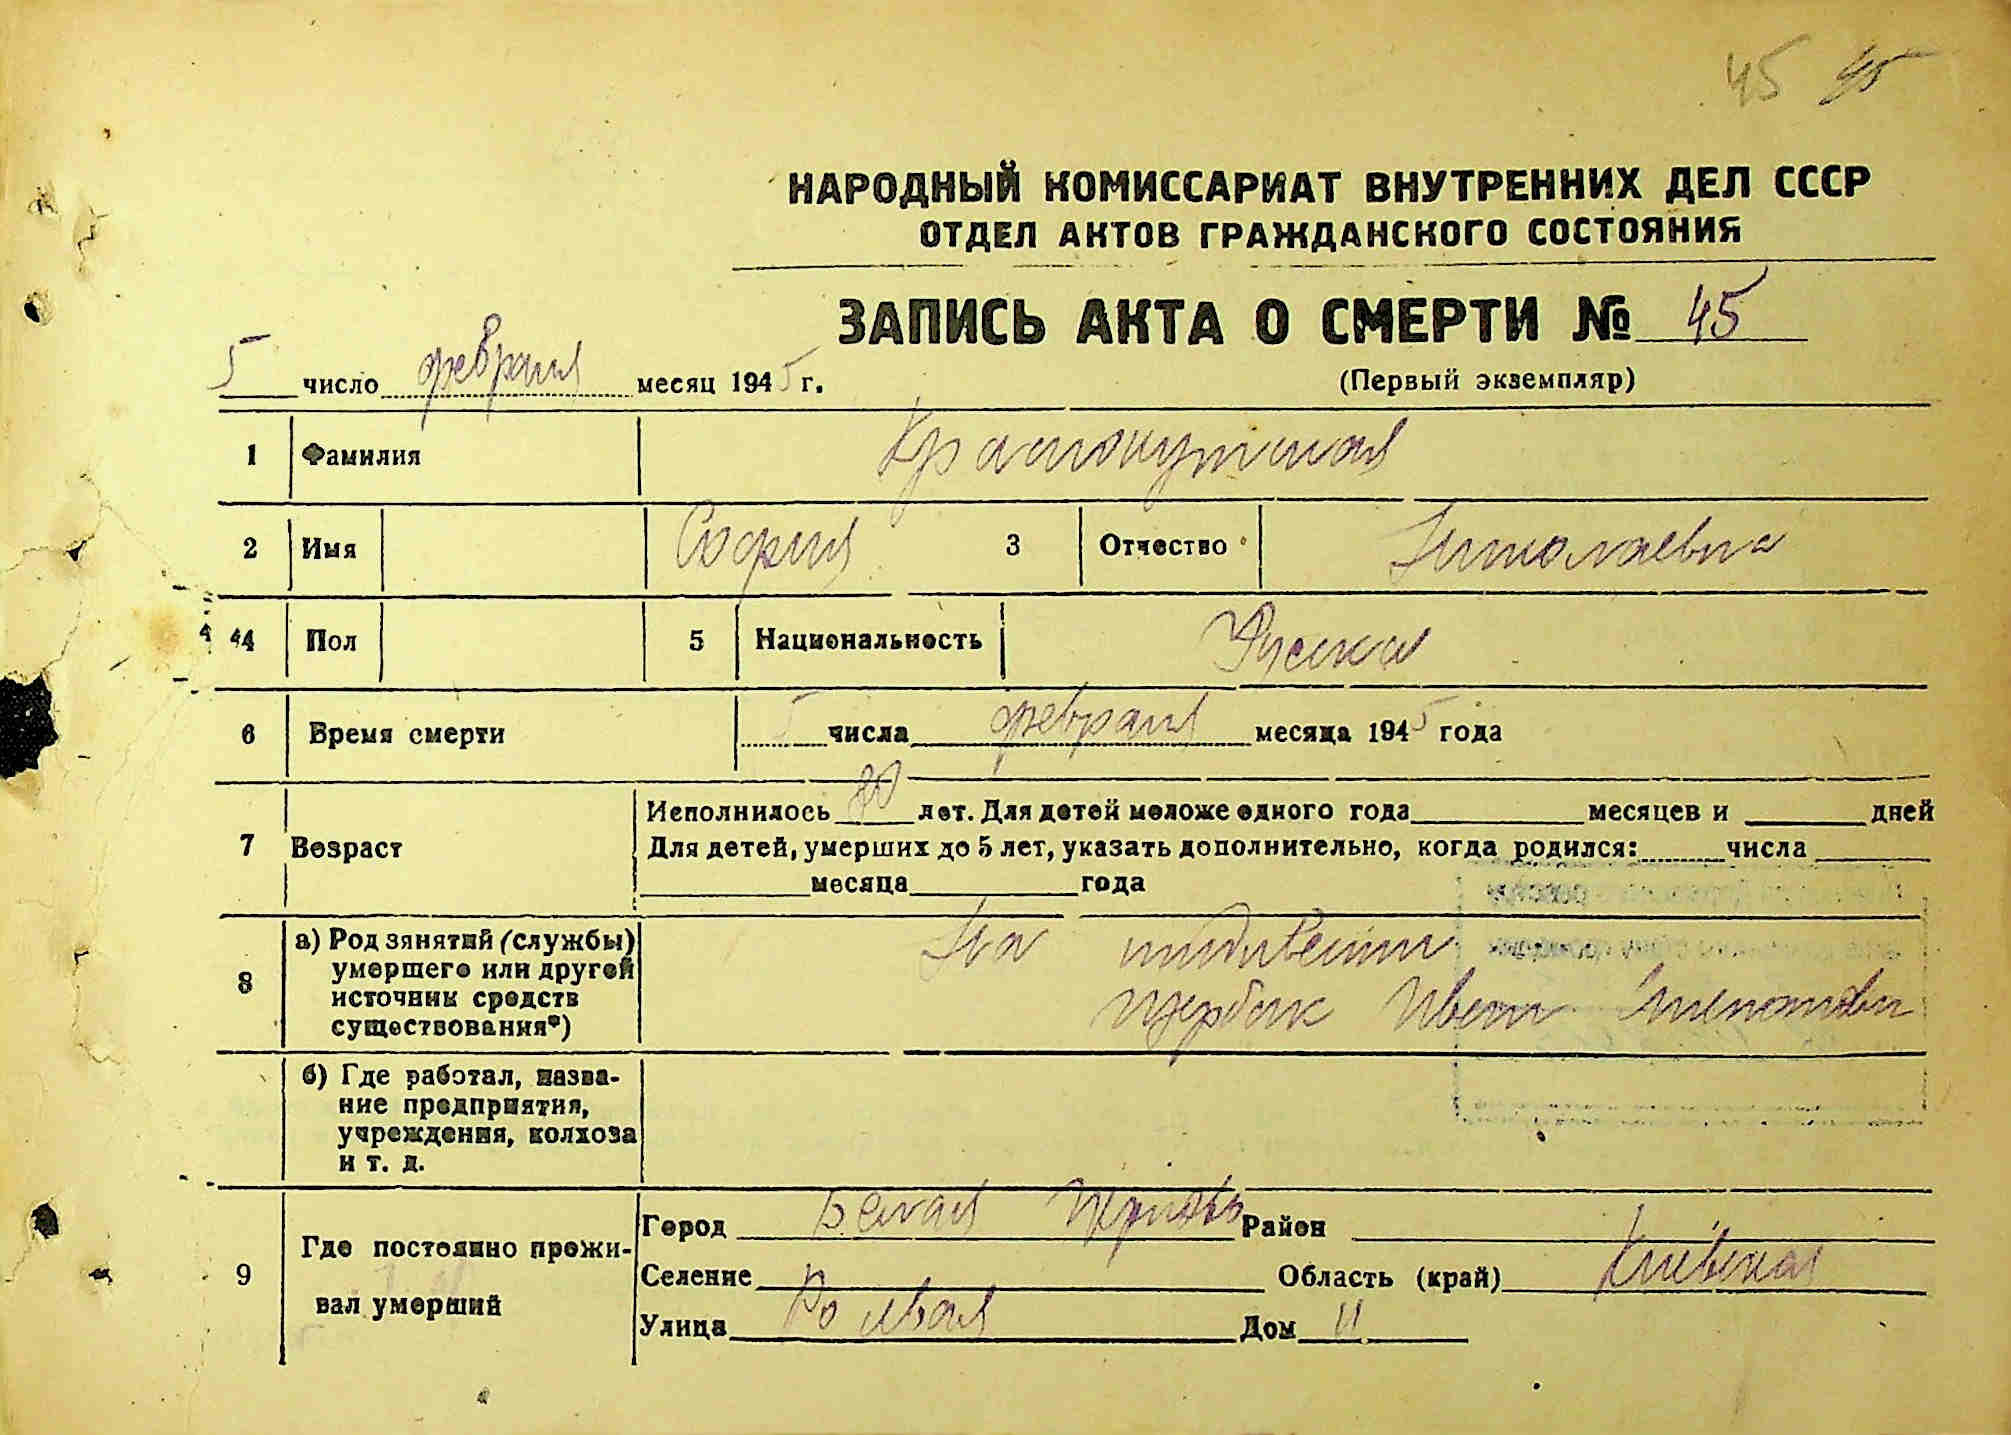 45 45
НАРОДНЫЙ КОМИССАРИАТ ВНУТРЕННИХ ДЕЛ СССР
ОТДЕЛ АКТОВ ГРАЖДАНСКОГО СОСТОЯНИЯ
ЗАПИСЬ АКТА О СМЕРТИ № 45
5 число февраля месяц 1945 г.
(Первый экземпляр)
1 Фамилия Краснокутская
2 Имя София 3 Отчество Николаевна
4 Пол 5 Национальность Русская
6 Время смерти 5 числа февраля месяца 1945 года
7 Возраст
Исполнилось 80 лет. Для детей моложе одного года месяцев и дней
Для детей, умерших до 5 лет, указать дополнительно, когда родился: числа
месяца года
8 а) Род занятий (службы) умершего или другой источник средств существования*)
На иждивении
Щербак
б) Где работал, название предприятия, учреждения, колхоза и т. д.
9 Где постоянно проживал умерший
Город Белая Церковь Район
Селение Область (край) Киевская
Улица Дом 11